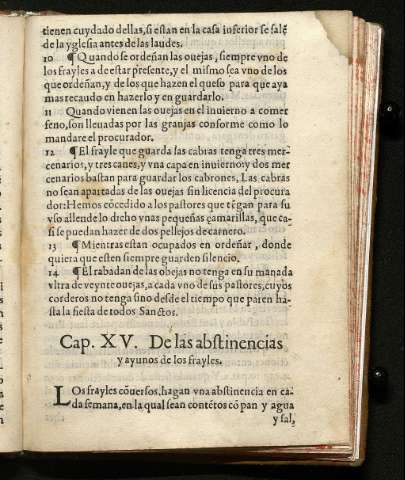 tienen cuydado dellas, si estan en la casa inferior se salẽ
de la yglesia antes de las laudes.
10 ¶ Quando se ordeñan las ouejas, siempre vno de
los frayles a de estar presente, y el mismo sea vno de los
que ordeñan, y de los que hazen el queso para que aya
mas recaudo en hazerlo y en guardarlo.
11 Quando vienen las ouejas en el inuierno a comer
feno, son lleuadas por las granjas conforme como lo
mandare el procurador.
12 ¶ El frayle que guarda las cabras tenga tres mer-
cenarios, y tres canes, y vna capa en inuierno: y dos mer
cenarios bastan para guardar los cabrones. Las cabras
no sean apartadas de las ouejas sin licencia del procura
dor: Hemos cõcedido a los pastores que tẽgan para su
vso allende lo dicho vnas pequeñas çamarrillas, que ca-
si se puedan hazer de dos pellejos de carnero.
13 ¶ Mientras estan ocupados en ordeñar, donde
quiera que esten siempre guarden silencio.
14 ¶ El rabadan de las obejas no tenga en su manada
vltra de veynte ouejas, a cada vno de sus pastores, cuyos
corderos no tenga sino desde el tiempo que paren ha-
sta la fiesta de todos Sanctos.
Cap. XV. De las abstinencias
y ayunos de los frayles.
LOs frayles cõuersos, hagan vna abstinencia en ca-
da semana, en la qual sean contẽtos cõ pan y agua
y sal,